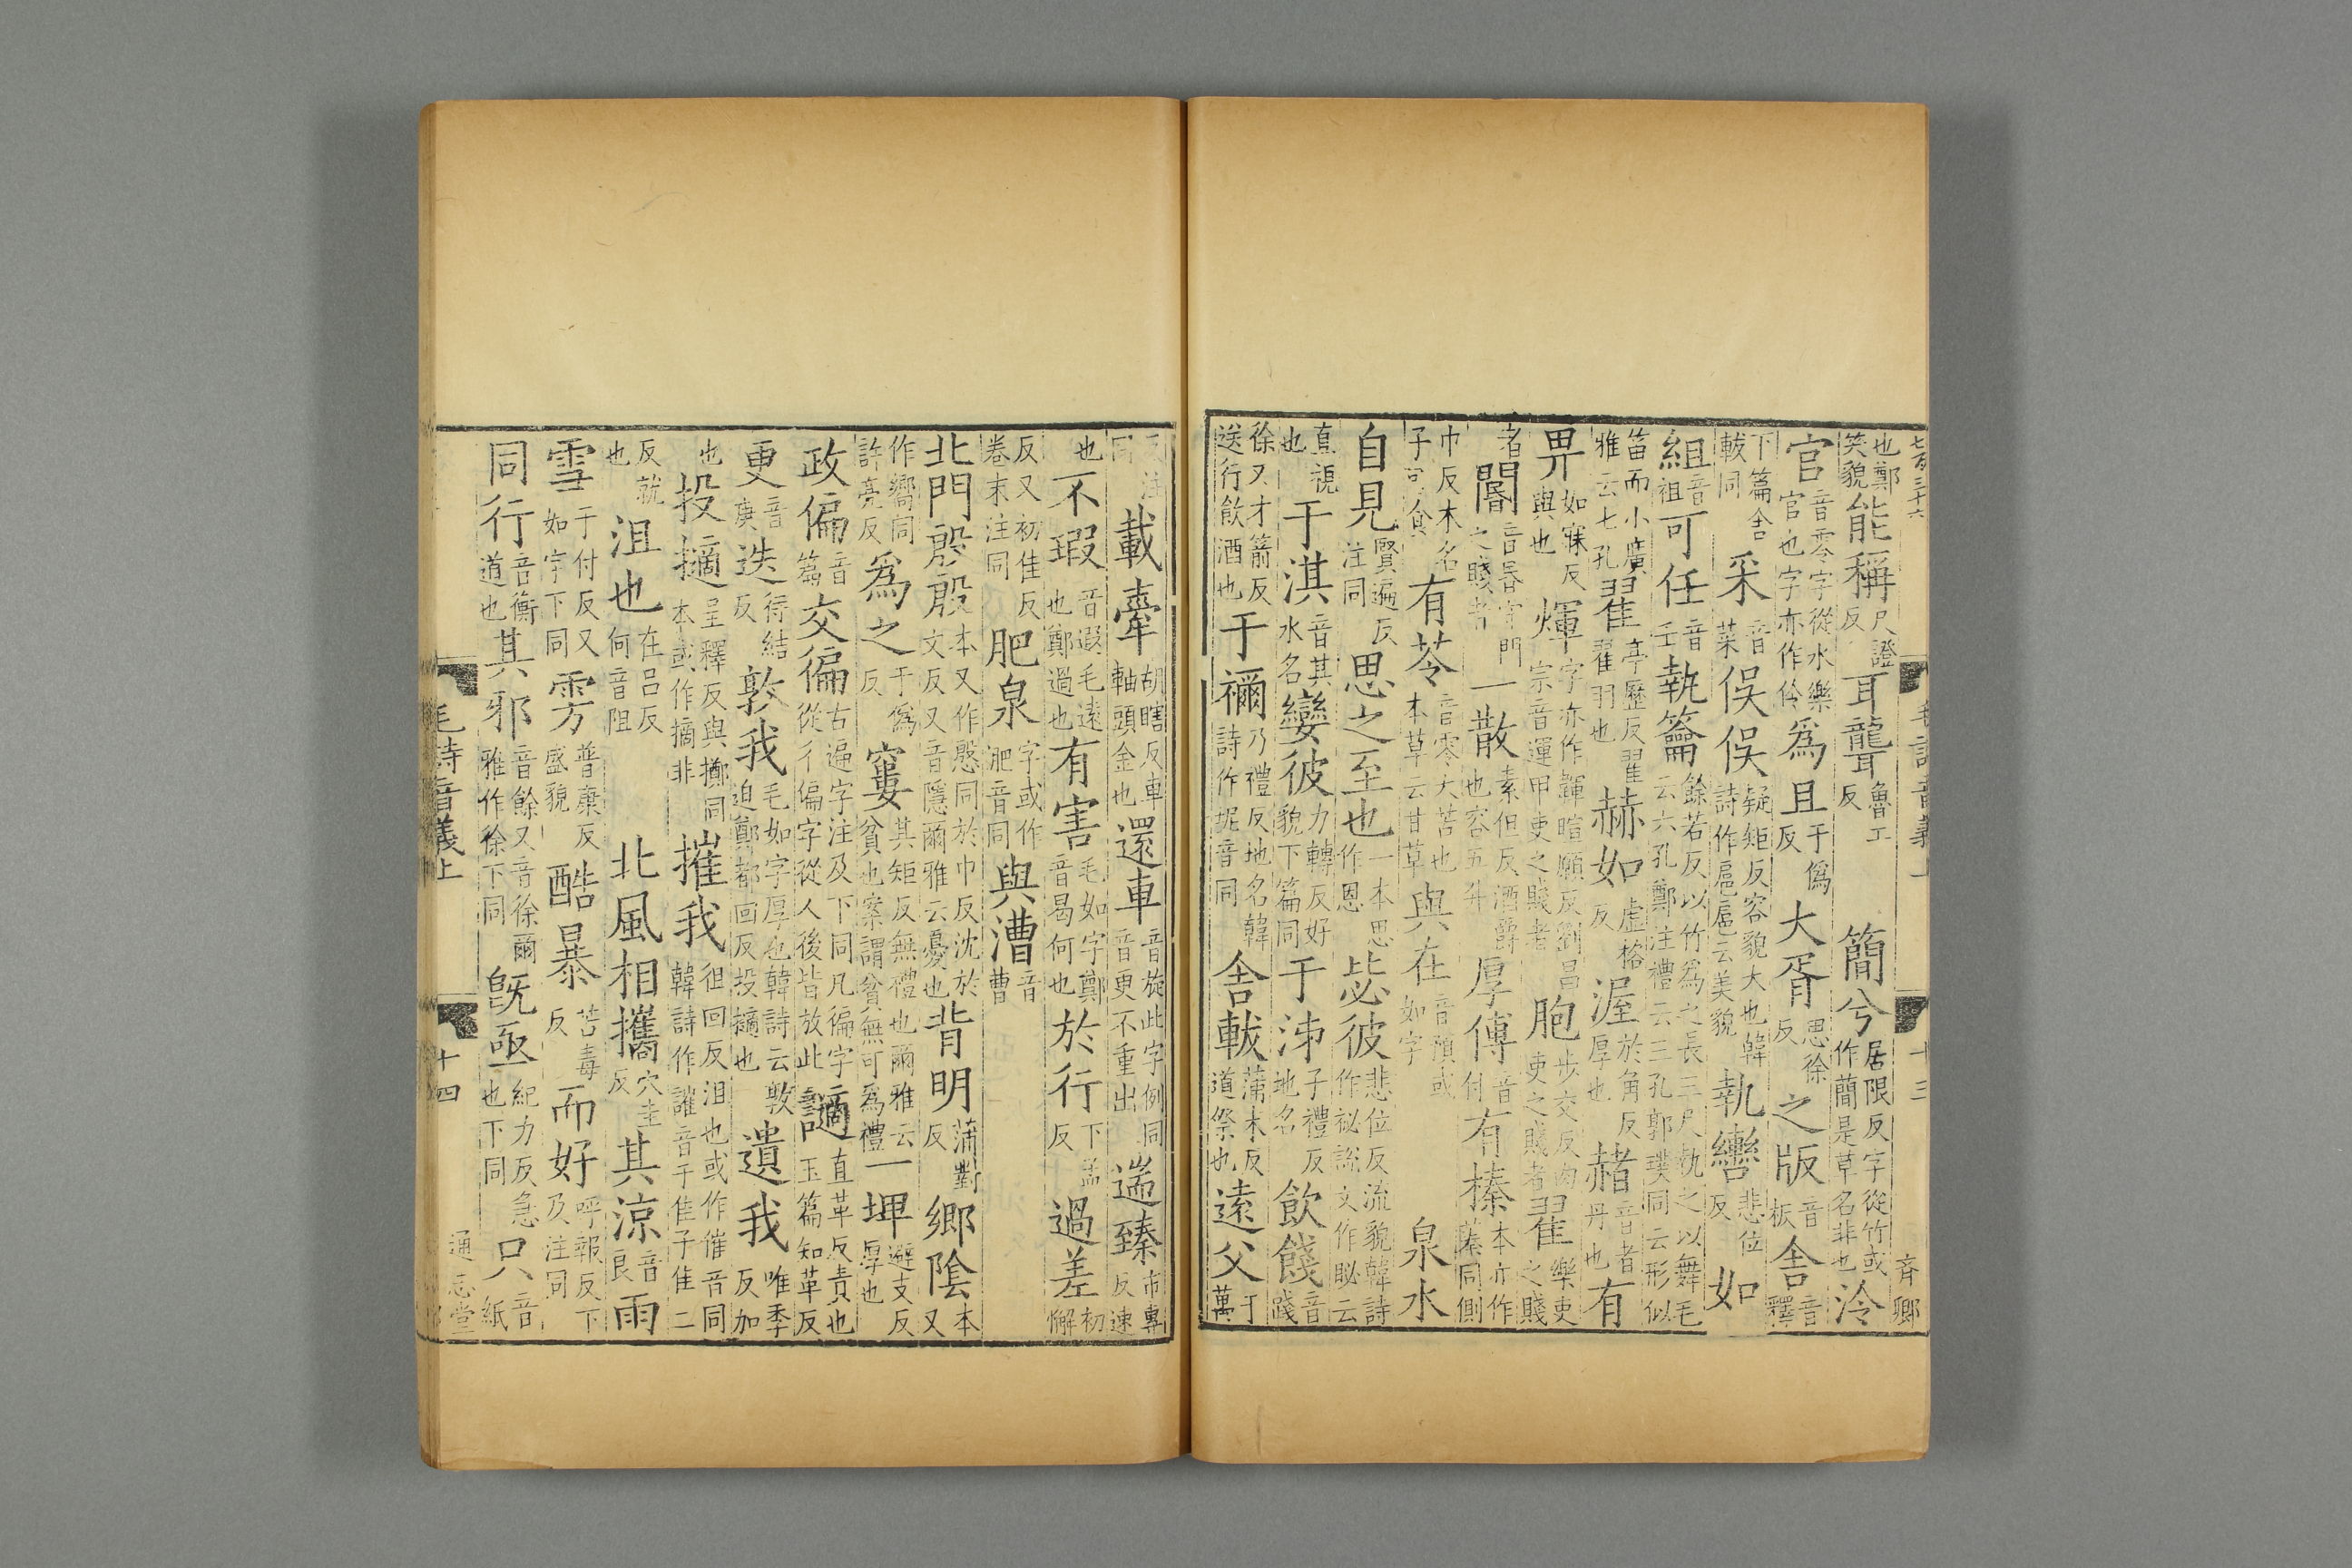 七百三十六 毛詩音義上 十三 齊卿
也鄭笑貌能稱尺證反耳聾魯工反簡兮居限反字從竹或作蕑是草名非也泠
官音零字從水樂官也字亦作伶為且于偽反大胥思徐反之版音板舍音釋
下篇舍軷同采音菜俁俁疑矩反容貌大也韓詩作扈扈云美貌執轡悲位反如
組音祖可任音壬執籥餘若反以竹為之長三尺執之以舞毛云六孔鄭注禮云三孔郭璞同云形似
笛而小廣雅云七孔翟亭歷反翟翟羽也赫如虛格反渥於角反厚也赭音者丹也有
畀如寐反與也煇字亦作韗暄願反劉昌宗音運甲吏之賤者胞步交反肉吏之賤者翟樂吏之賤
者閽音昬守門之賤者一散素但反酒爵也容五升厚傅音付有榛本亦作蓁同側
巾反木名子可食有苓音零大苦也本草云甘草與在音預或如字泉水
自見賢遍反注同思之至也一本思作恩毖彼悲位反流貌韓詩作祕說文作䀣云
直視也于淇音其水名孌彼力轉反好貌下篇同于泲子禮反地名飲餞音踐
徐又才箭反送行飲酒也于禰乃禮反地名韓詩作坭音同舍軷蒲末反道祭也遠父于萬
反注同載舝胡瞎反車軸頭金也還車音旋此字例同音更不重出遄臻市專反速
也不瑕音遐毛遠也鄭過也有害毛如字鄭音曷何也於行下孟反過差初懈
反又初佳反卷末注同肥泉字或作淝音同與漕音曹
北門殷殷本又作慇同於巾反沈於文反又音隱爾雅云憂也背明蒲對反鄉陰本又
作嚮同許亮反為之于偽反窶其矩反無禮也爾雅云貧也案謂貧無可為禮一埤避支反厚也
政偏音篇交徧古遍字注及下同凡徧字從彳偏字從人後皆放此讁直革反責也玉篇知革反
更音庚迭待結反敦我毛如字厚也韓詩云敦迫鄭都回反投擿也遺我唯季反加
也投擿呈釋反與擲同本或作摘非摧我徂回反沮也或作催音同韓詩作讙音千隹子隹二
反就也沮也在呂反何音阻北風相攜穴圭反其涼音良雨
雪于付反又如字下同雱普康反盛貌酷暴苦毒反而好呼報反下及注同
同行音衡道也其邪音餘又音徐爾雅作徐下同旣亟紀力反急也下同只音紙
毛詩音義上 十四 通志堂